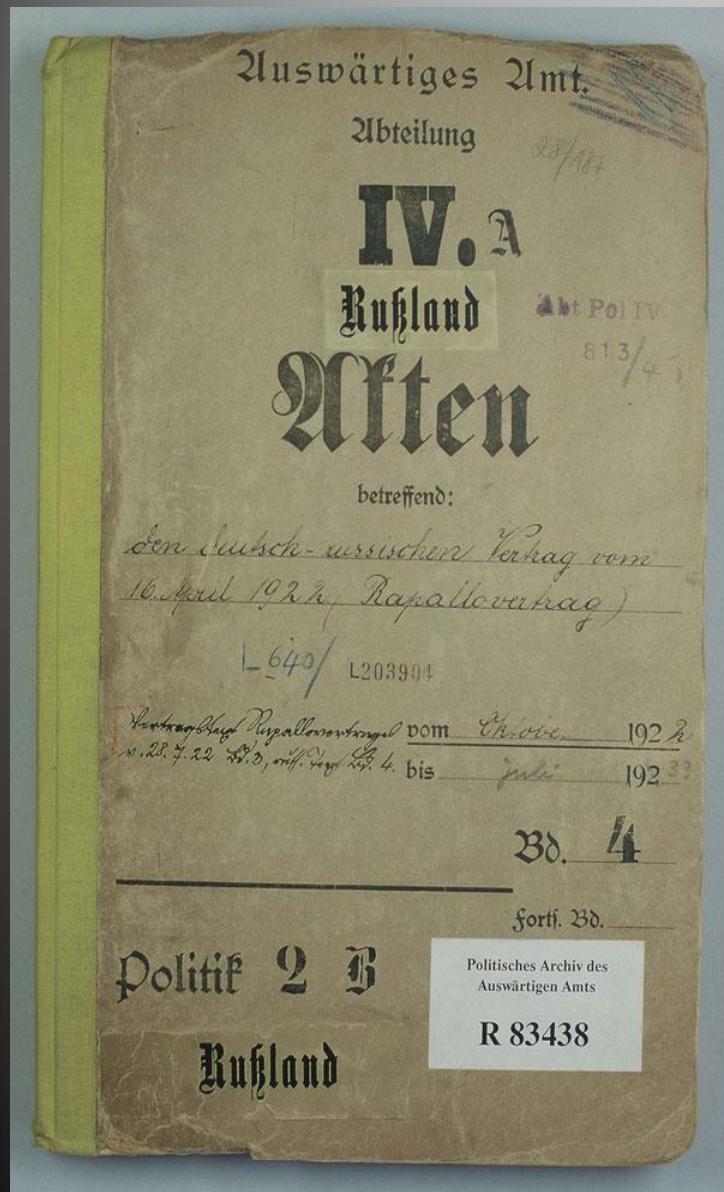 Auswärtiges Amt.
Abteilung
28/187
IV. A
Rußland
Abt Pol IV
813/4
Akten
betreffend:
den deutsch-russischen Vertrag vom
16. April 1922 (Rapallovertrag)
L 640/ L203904
Rapallovertrages vom Oktober 1922
v. 28. 7. 22 Bd. 3, russ. Bd. 4. bis Juli 1933
Bd. 4
Forts. Bd.
Politik 2 B
Rußland
Politisches Archiv des
Auswärtigen Amts
R 83438